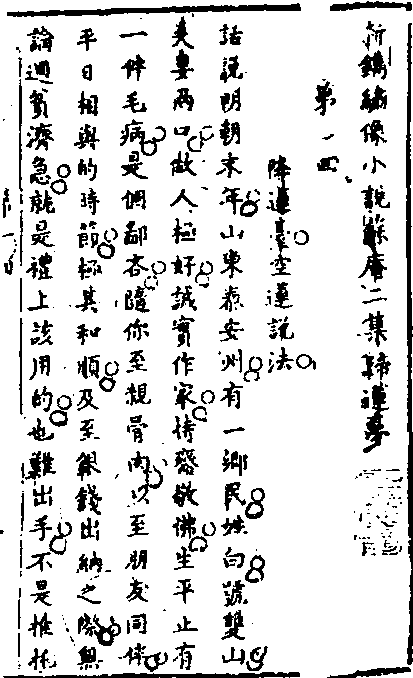 新鐫繡像小說蘇庵二集歸蓮夢
第一回
降蓮臺空蓮說法
話說明朝末年山東泰安州有一鄉民姓白號雙山
夫妻兩口做人極好誠實作家持齋敬佛生平止有
一件毛病是個鄙吝隨你至親骨肉以至朋友同伴
平日相與的時節極其和順及至銀錢出納之際無
論週貧濟急就是禮上該用的也難出手不是推托